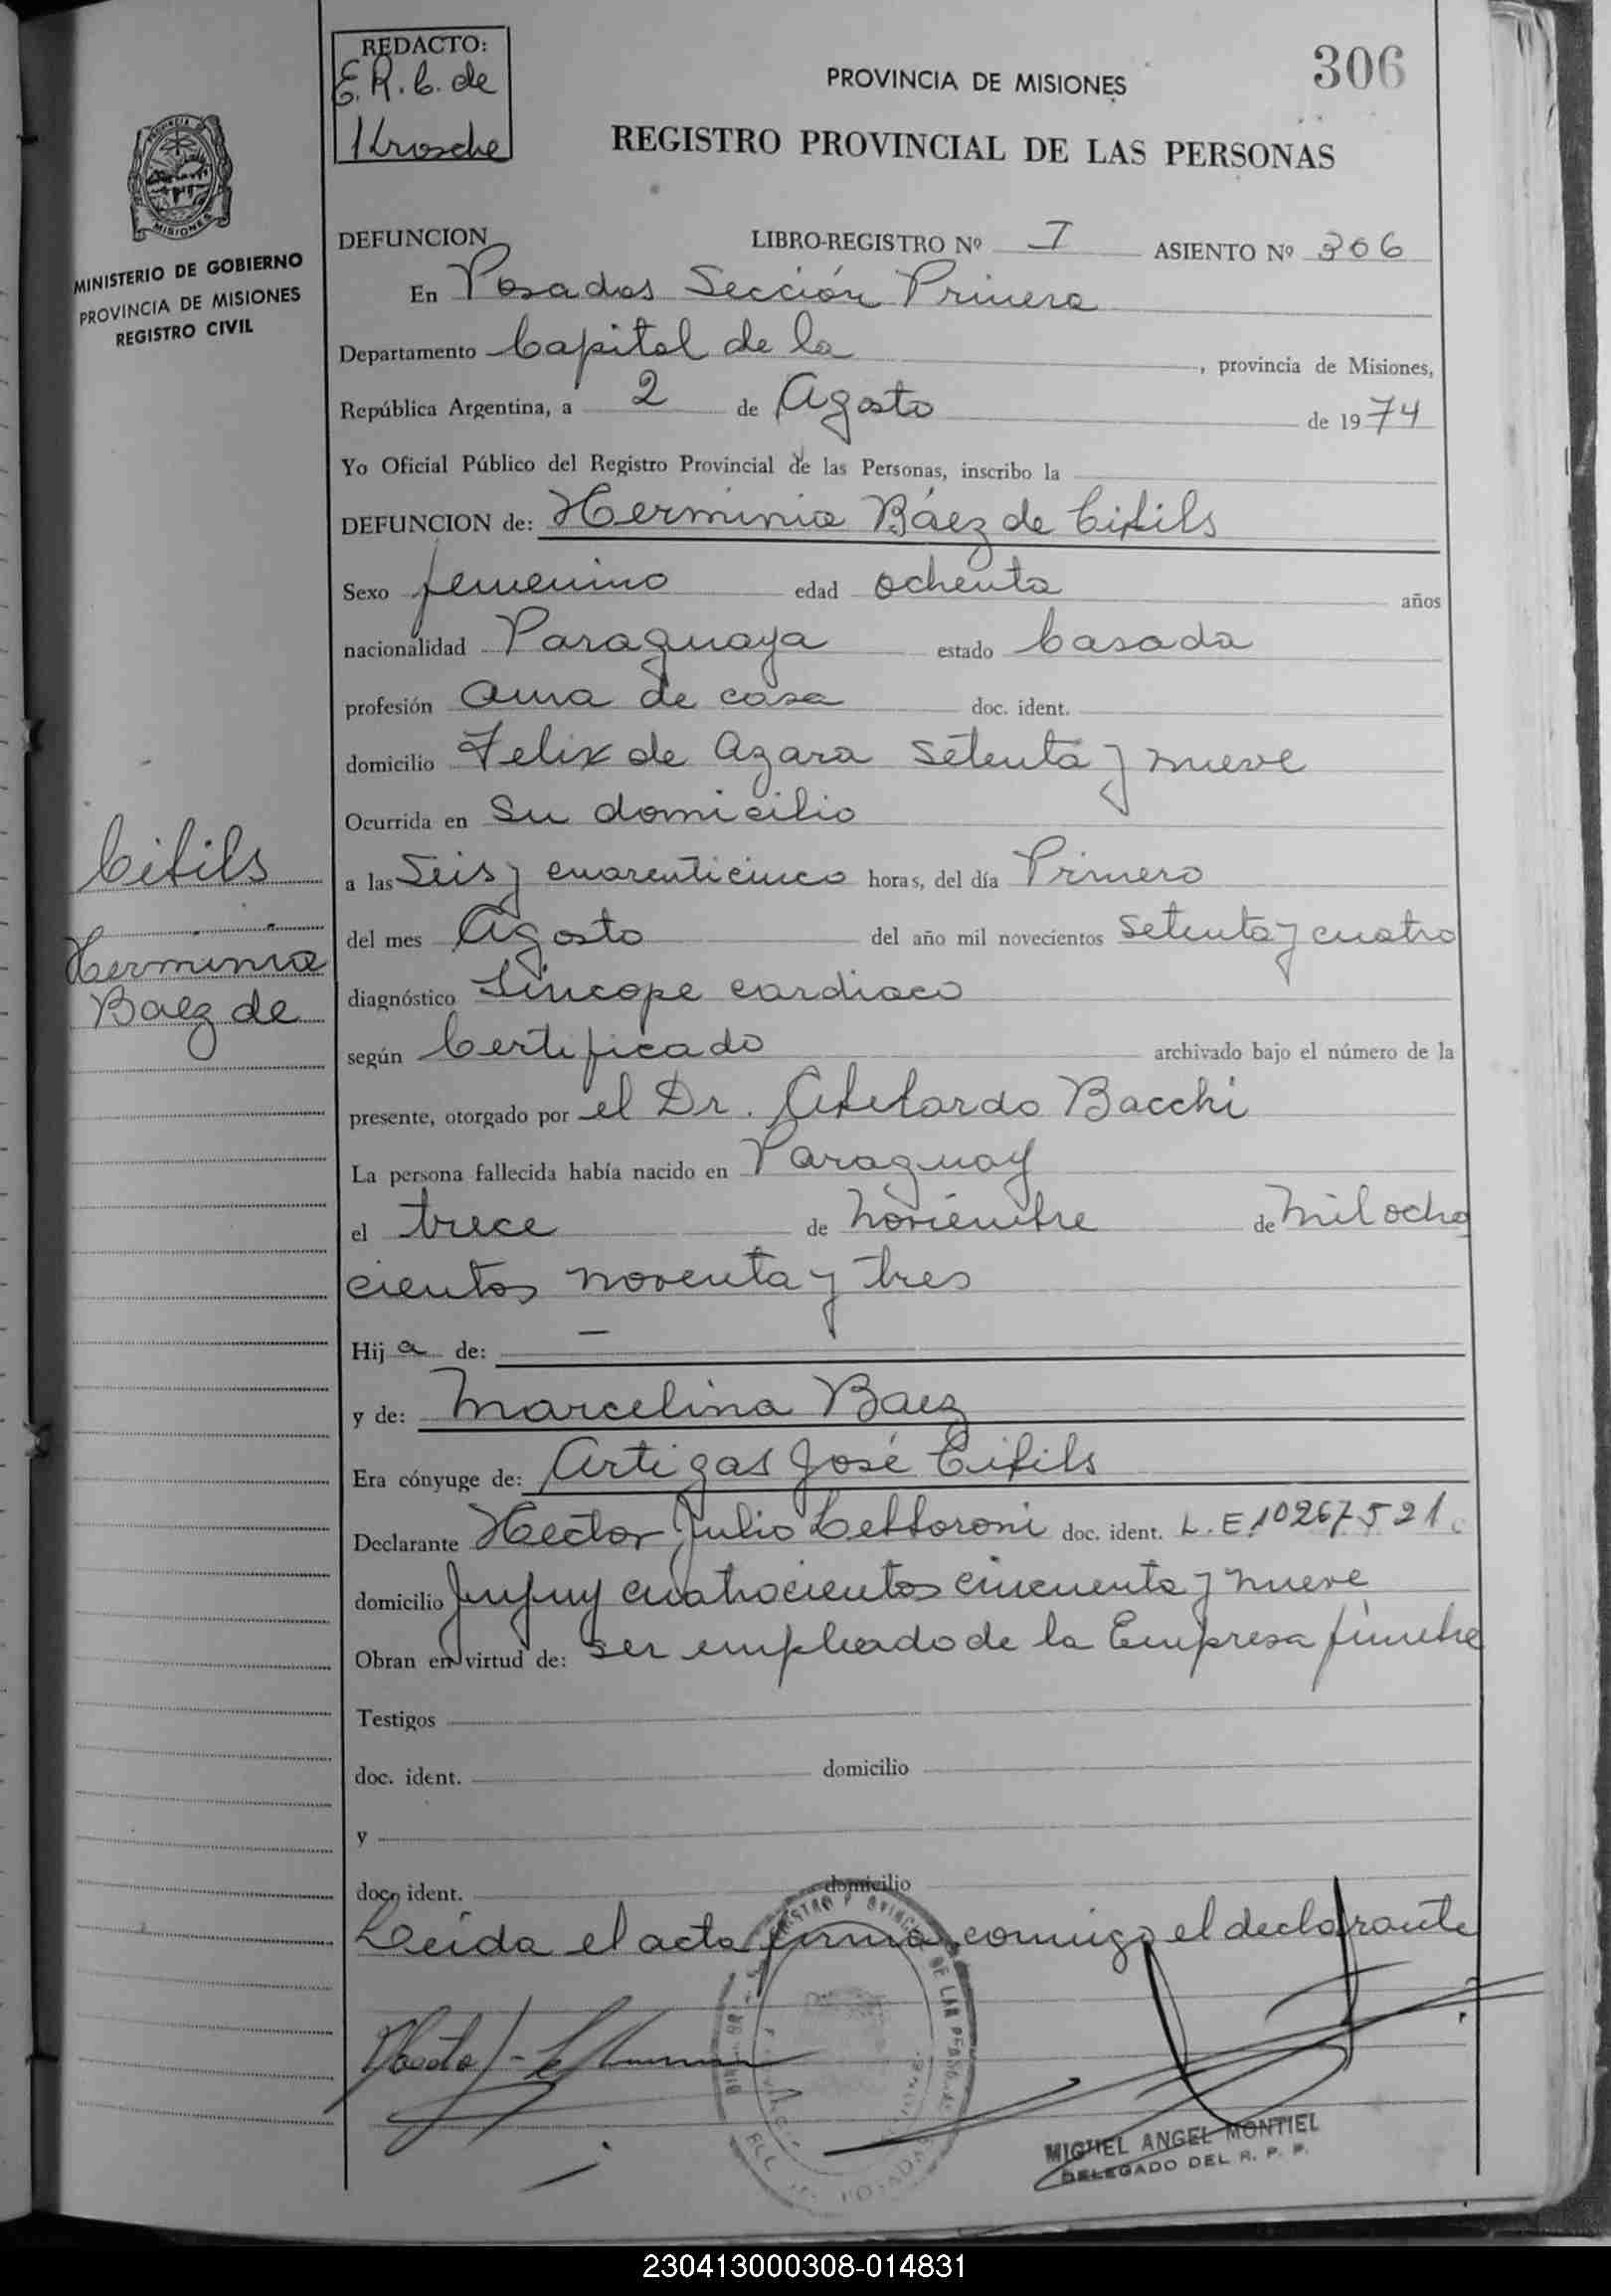 REDACTO:
E.R.C. de
Krosche
306
PROVINCIA DE MISIONES
REGISTRO PROVINCIAL DE LAS PERSONAS
PROVINCIA DE
MISIONES
MINISTERIO DE GOBIERNO
PROVINCIA DE MISIONES
REGISTRO CIVIL
DEFUNCION LIBRO-REGISTRO Nº I ASIENTO Nº 306
En Posadas Sección Primera
Departamento Capital de la , provincia de Misiones,
República Argentina, a 2 de Agosto de 1974
Yo Oficial Público del Registro Provincial de las Personas, inscribo la
DEFUNCION de: Herminia Báez de Cibils
Sexo femenino edad ochenta años
nacionalidad Paraguaya estado Casada
profesión ama de casa doc. ident.
domicilio Felix de Azara setenta y nueve
Ocurrida en su domicilio
a las Seis y cuarenticinco horas, del día Primero
del mes Agosto del año mil novecientos setenta y cuatro
diagnóstico Síncope cardiaco
según Certificado archivado bajo el número de la
presente, otorgado por el Dr. Abelardo Bacchi
La persona fallecida había nacido en Paraguay
el trece de noviembre de mil ocho
cientos noventa y tres
Hija de: —
y de: Marcelina Baez
Era cónyuge de: Artigas José Cibils
Declarante Hector Julio doc. ident. L.E. 10267521
domicilio Jujuy cuatrocientos cincuenta y nueve
Obran en virtud de: ser empleado de la Empresa fúnebre
Testigos
doc. ident. domicilio
y
doc. ident. domicilio
Leída el acta firma conmigo el declarante
Cibils
Herminia
Baez de
MIGUEL ANGEL MONTIEL
DELEGADO DEL R. P. P.
230413000308-014831